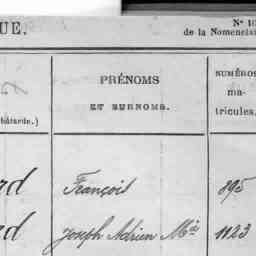 UE.
N° 10
de la Nomencla
PRÉNOMS
ET SURNOMS.
NUMÉROS
ma-
tricules.
bâtarde.)
rd
François
895
rd
Joseph Adrien Mie
1123